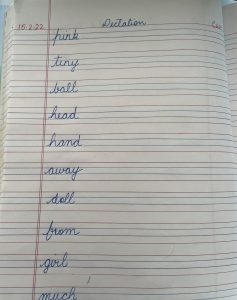 15.2.22 Dictation
pink
tiny
ball
head
hand
away
doll
from
girl
much